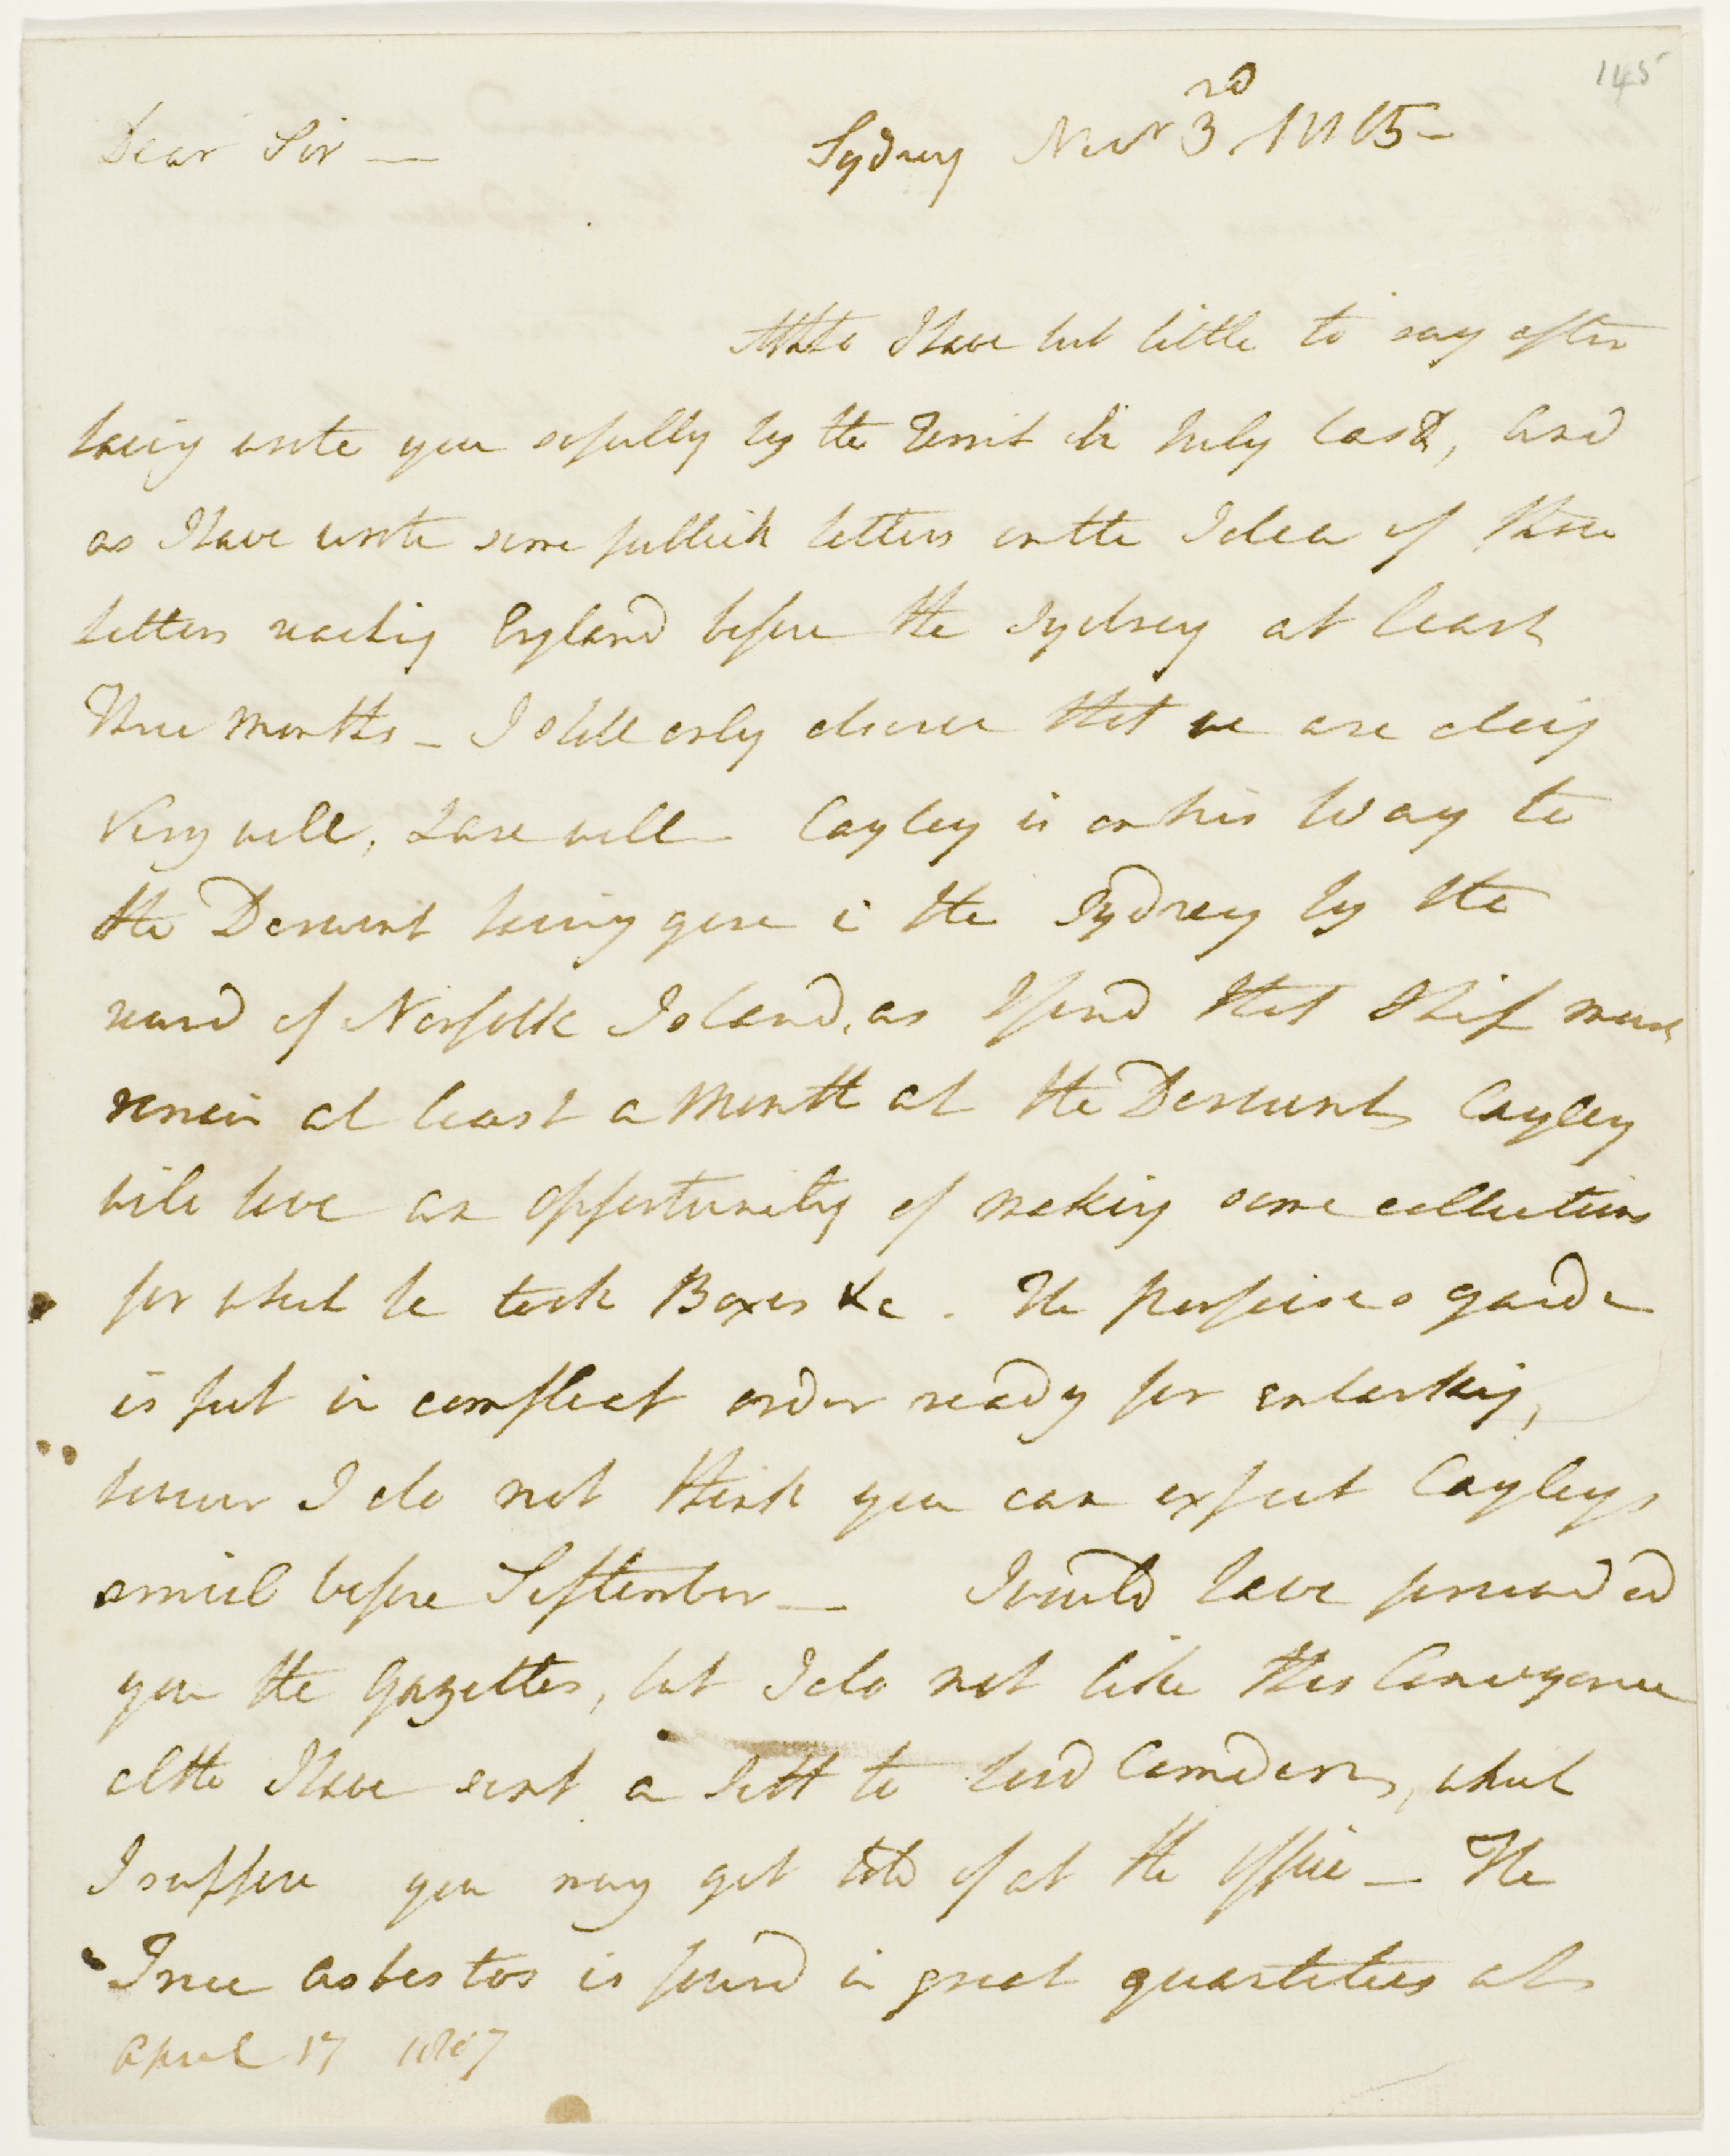 145
Dear Sir —
Sydney Novr 3rd 1805 —
Altho I have but little to say after
having wrote you so fully by the in July last, and
as I have wrote some publick letters on the Idea of those
letters reaching England before the Sydney at least
Three Months – I shall only observe that we are doing
Very well, & are well – Cayley is on his Way to
the Derwent having gone in the Sydney by the
round of Norfolk Island, as I find that Ship must
remain at least a Month at the Derwent, Cayley
will have an opportunity of making some collections
for which he took Boxes &c. The Porpoises garden
is put in compleat order ready for embarking,
however I do not think you can expect Cayleys
arrival before September — I would have forwarded
you the Gazettes, but I do not like this Conveyance
altho I have sent a Sett to Lord Camden, which
I suppose you may get hold of at the Office — The
True Asbestos is found in great quantities at
April 17 1807